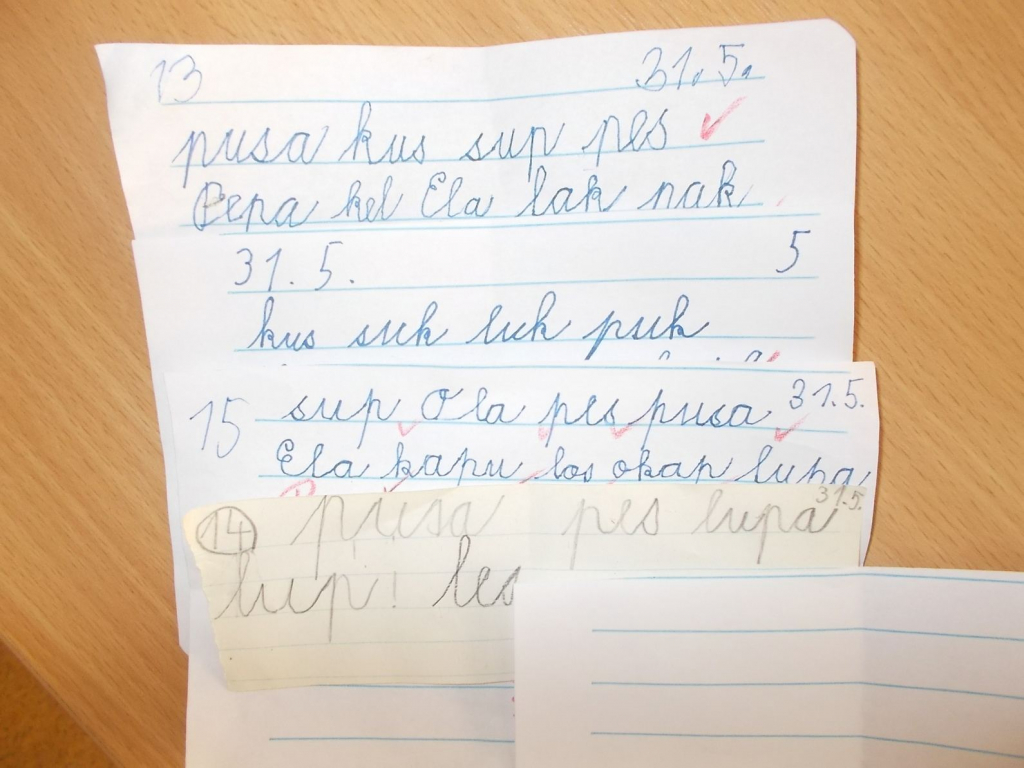 13 31.5.
pusa kus sup pes
Pepa kel Ela lak nak
31.5. 5
kus suk luk puk
15 sup Ola pes pusa 31.5.
Ela kapu los okap lupa
14 pusa pes lupa 31.5.
lup! les